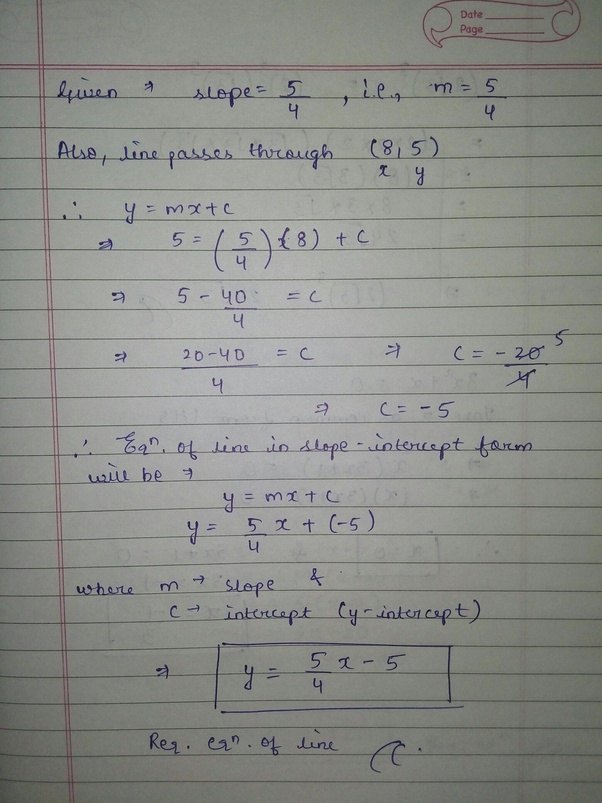 Date
Page
Given ⇒ slope = 5/4 , i.e., m = 5/4
Also, line passes through (8, 5)
x y
∴ y = mx + c
⇒ 5 = (5/4) (8) + c
⇒ 5 - 40/4 = c
⇒ 20-40/4 = c ⇒ c = -20/4 5
⇒ c = -5
∴ Eqn. of line in slope-intercept form
will be ⇒
y = mx + c
y = 5/4 x + (-5)
where m → slope &
c → intercept (y-intercept)
⇒ y = 5/4 x - 5
Req. eqn. of line